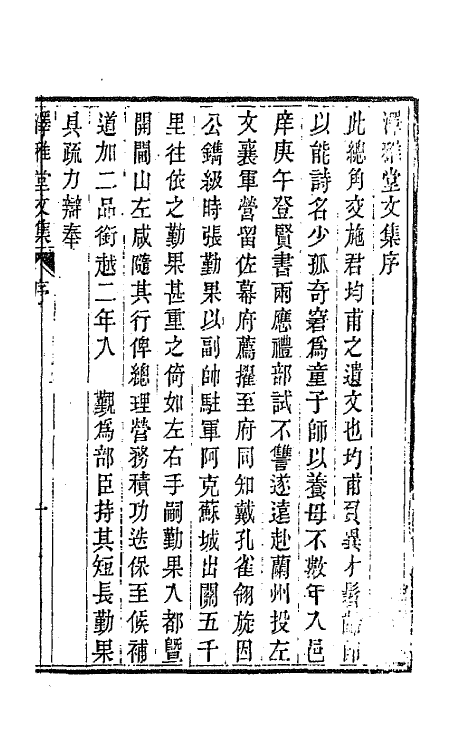 澤雅堂文集序
此總角交施君均甫之遺文也均甫負異才髫齡即
以能詩名少孤奇窘爲童子師以養母不數年入邑
庠庚午登賢書兩應禮部試不讐遂遠赴蘭州投左
文襄軍營留佐幕府薦擢至府同知戴孔雀翎旋因
公鐫級時張勤果以副帥駐軍阿克蘇城出關五千
里往依之勤果甚重之倚如左右手嗣勤果入都暨
開閫山左咸隨其行俾總理營務積功迭保至候補
道加二品銜越二年入　覲爲部臣持其短長勤果
具疏力辯奉
澤雅堂文集　序　一